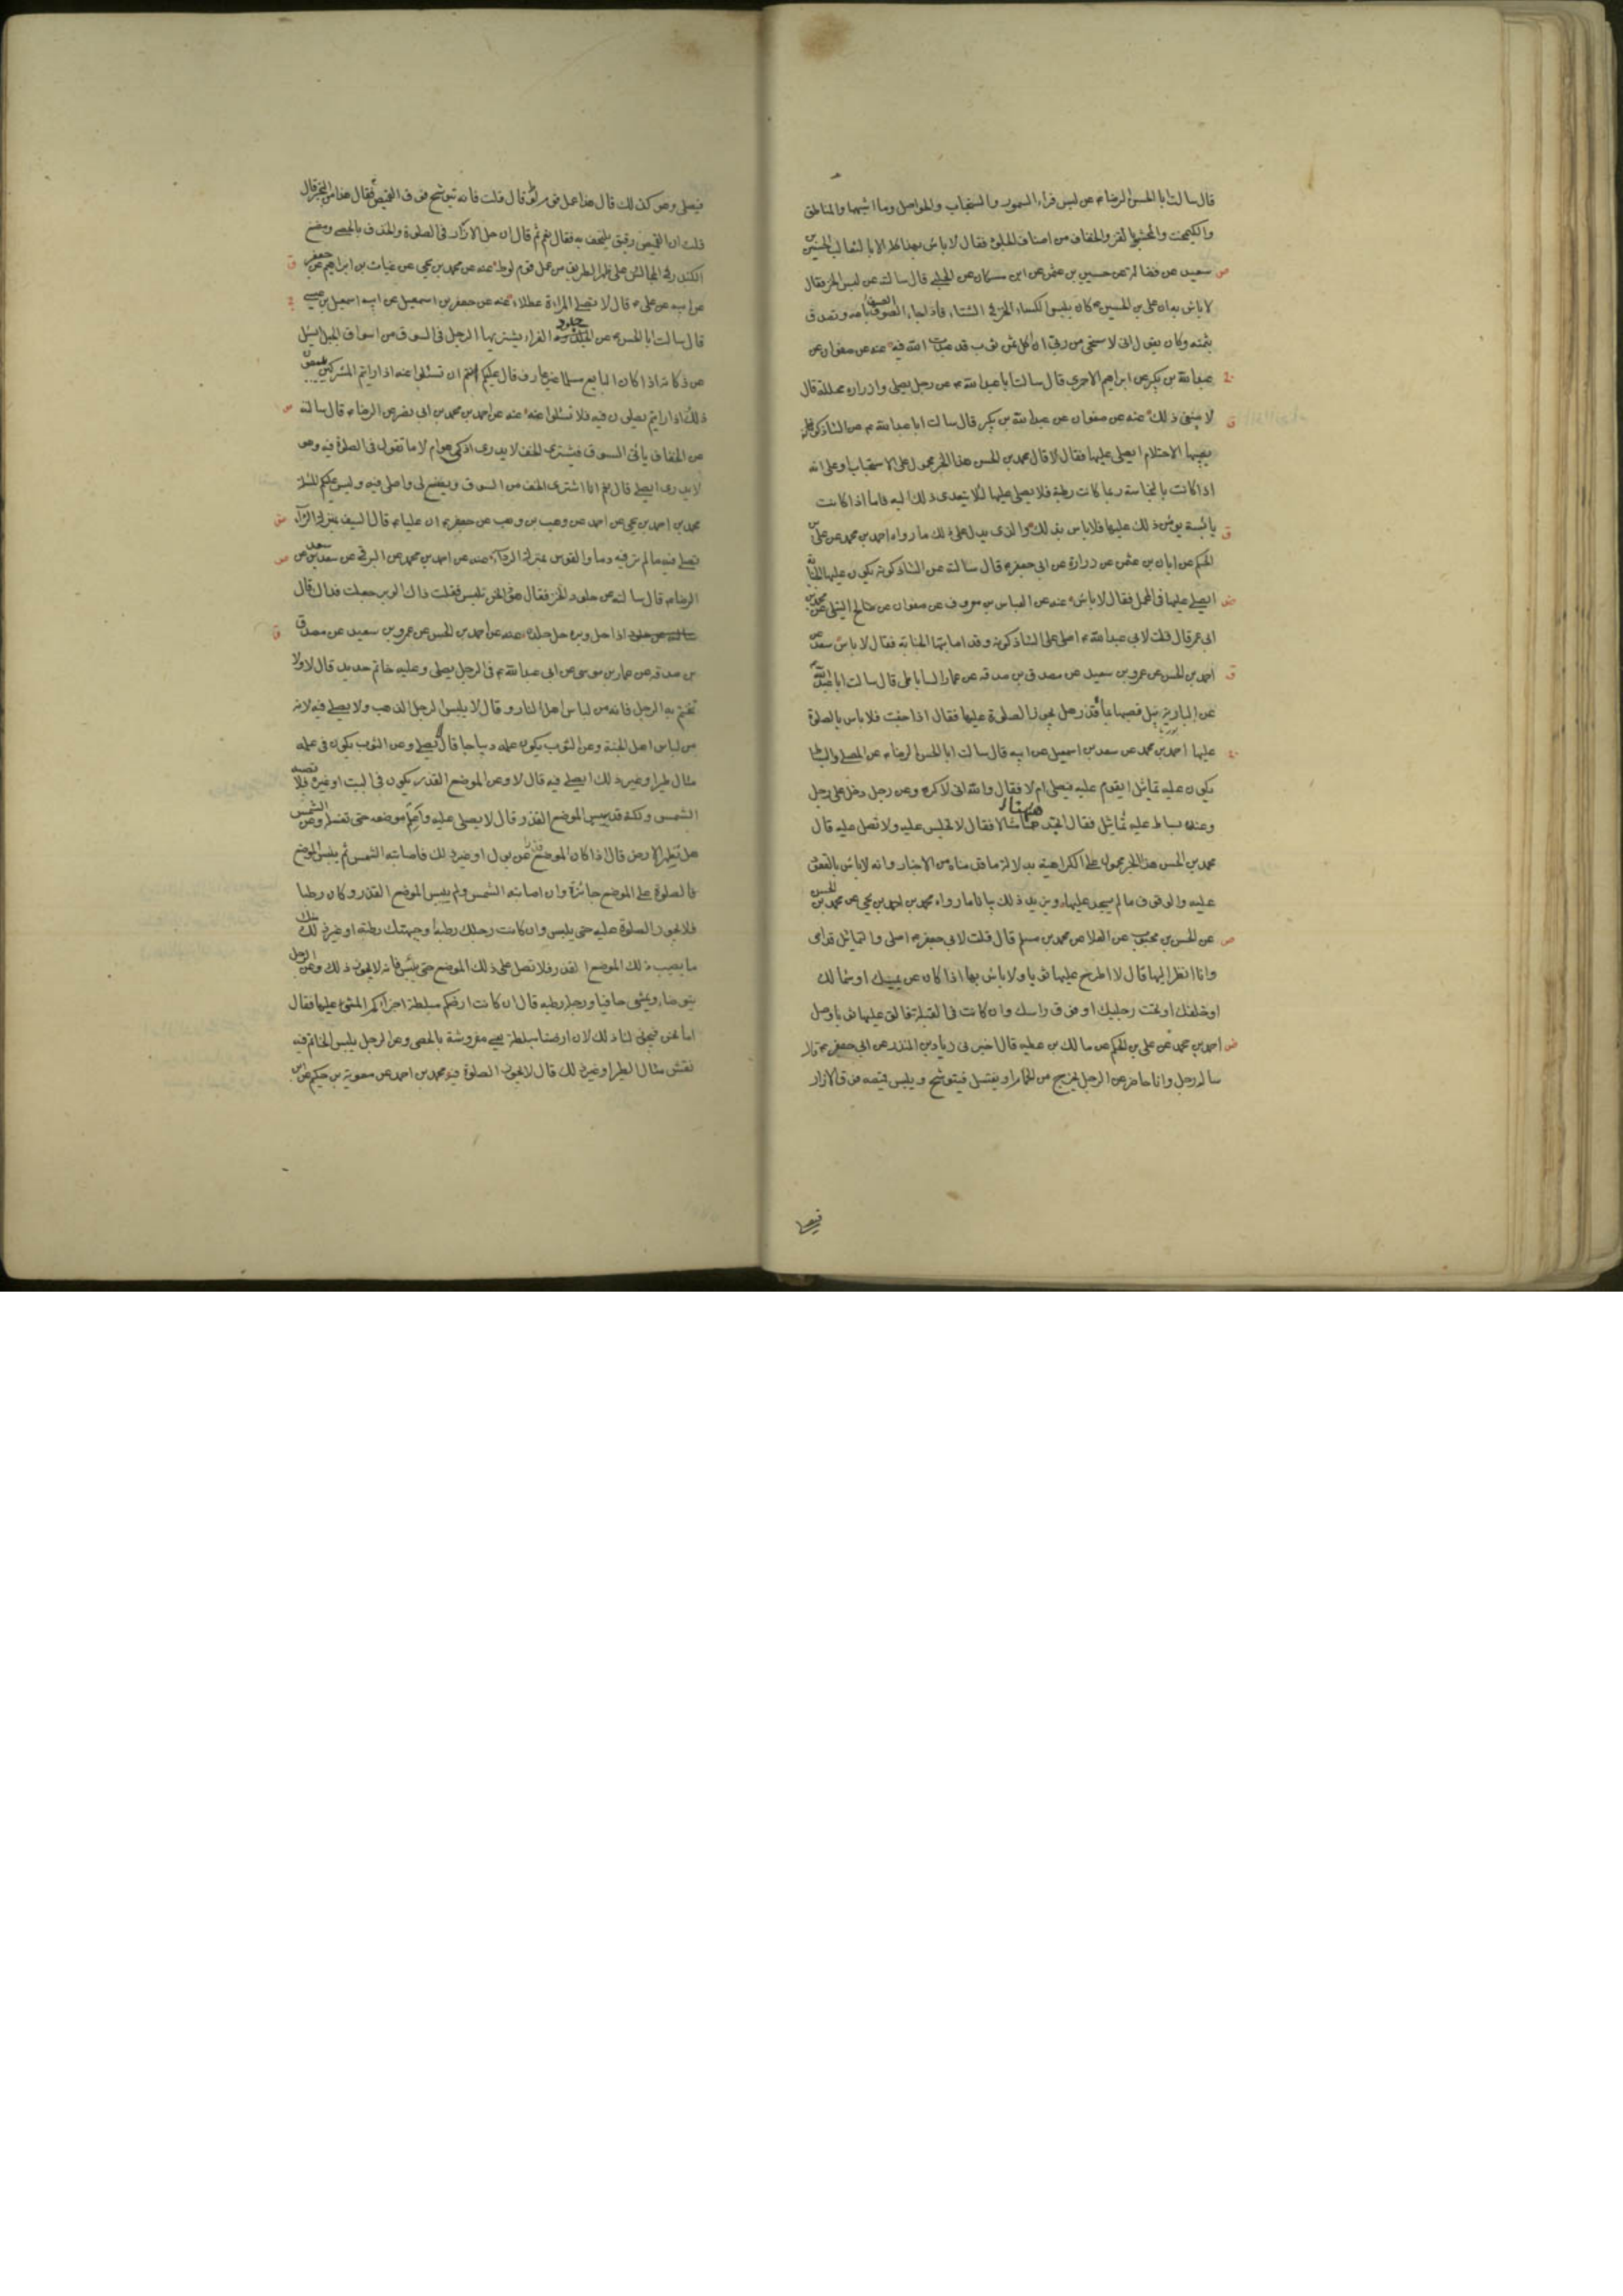 قال سالت ابا الحسن الرضا ع عن لبس فراء السمور والسنجاب والحواصل وما اشبهها والمناطق
والكيمخت والمحشو بالقز والخفاف من اصناف الجلود فقال لا باس بهذا كله الا بالثعالب الحسين بن
سعيد عن فضالة عن حسين بن عثمن عن ابن مسكان عن الحلبي قال سالته عن لبس الخز فقال
لا باس به ان علي بن الحسين ع كان يلبس الكساء الخز في الشتاء فاذا جاء الصيف باعه وتصدق
بثمنه وكان يقول اني لاستحيي من ربي ان اكل ثمن ثوب قد عبدت الله فيه عنه عن صفوان عن
عبد الله بن بكير عن ابراهيم الاحمري قال سالت ابا عبد الله ع عن رجل يصلي وازراره محللة قال
لا ينبغي ذلك عنه عن صفوان عن عبد الله بن بكير قال سالت ابا عبد الله ع عن الشاذكونة
يصيبها الاحتلام ايصلي عليها فقال لا قال محمد بن الحسن هذا الخبر محمول على الاستحباب او على انه
اذا كانت النجاسة رطبة فلا يصلي عليها لئلا يتعدى ذلك اليه فاما اذا كانت
يابسة ذلك عليها فلا باس بذلك والذي يدل على ذلك ما رواه احمد بن محمد عن علي بن
الحكم عن ابان بن عثمن عن زرارة عن ابي جعفر ع قال سالته عن الشاذكونة يكون عليها الجنابة
ايصلي عليها في المحمل فقال لا باس عنه عن العباس بن معروف عن صفوان عن صالح النيلي عن محمد بن
ابي عمير قال قلت لابي عبد الله ع اصلي على الشاذكونة وقد اصابتها الجنابة فقال لا باس سعد عن
احمد بن الحسن عن عمرو بن سعيد عن مصدق بن صدقة عن عمار الساباطي قال سالت ابا عبد الله
عن البارية يبل قصبها بماء قذر هل يجوز الصلوة عليها فقال اذا جفت فلا باس بالصلوة
عليها احمد بن محمد عن سعد بن اسمعيل عن ابيه قال سالت ابا الحسن الرضا ع عن المصلي والبساط
يكون عليه تماثيل ايقوم عليه فيصلي ام لا فقال والله اني لاكره وعن رجل دخل على رجل
وعنده بساط عليه تماثيل فقال اتجد ههنا مثالا فقال لا تجلس عليه ولا تصل عليه قال
محمد بن الحسن هذا الخبر محمول على الكراهية بدلالة ما قدمناه من الاخبار وانه لا باس بالقعود
عليه والوقوف ما لم يسجد عليها ويزيد ذلك بيانا ما رواه محمد بن احمد بن يحيى عن محمد بن الحسين
عن الحسن بن محبوب عن العلا عن محمد بن مسلم قال قلت لابي جعفر ع اصلي والتماثيل قدامي
وانا انظر اليها قال لا اطرح عليها ثوبا ولا باس بها اذا كان عن يمينك او شمالك
او خلفك او تحت رجليك او فوق راسك وان كانت في القبلة فالق عليها ثوبا وصل
احمد بن محمد عن علي بن الحكم عن مالك بن عطيه قال اخبرني زياد بن المنذر عن ابي جعفر ع قال
ساله رجل وانا حاضر عن الرجل يخرج من الحمام او يغتسل فيتوشح ويلبس قميصه فوق الازار
فيصلي
فيصلي وهو كذلك قال هذا عمل قوم لوط قال قلت فانه يتوشح فوق القميص فقال هذا من التجبر قال
قلت ان القميص رقيق يلتحف به فقال نعم ثم قال ان حل الازرار في الصلوة والخذف بالحصى ومضغ
الكندر في المجالس على ظهر الطريق من عمل قوم لوط عنه عن محمد بن يحيى عن غياث بن ابراهيم عن جعفر
عن ابيه عن علي ع قال لا تصلي المراة عطلا عنه عن جعفر بن اسمعيل عن ابيه اسمعيل بن عيسى
قال سالت ابا الحسن ع عن جلود الفراء يشتريها الرجل في السوق من اسواق الجبل ايسئل
عن ذكاته اذا كان البايع مسلما غير عارف قال عليكم انتم ان تسئلوا عنه اذا رايتم المشركين يبيعون
ذلك اذا رايتم يصلون فيه فلا تسئلوا عنه عنه عن احمد بن محمد بن ابي نصر عن الرضا ع قال سالته
عن الخفاف ياتي السوق فيشتري الخف لا يدري اذكي هو ام لا ما تقول في الصلوة فيه وهو
لا يدري ايصلي قال نعم انا اشتري الخف من السوق ويصنع لي واصلي فيه وليس عليكم المسئلة
محمد بن احمد بن يحيى عن احمد عن وهب بن وهب عن جعفر ع ان عليا ع قال السيف بمنزلة الرداء
تصلي فيه ما لم تر فيه دما والقوس بمنزلة الرداء عنه عن احمد بن محمد عن البرقي عن سعد بن سعد عن
الرضا ع قال سالته عن جلود الخز فقال هو ذا نلبس فقلت ذاك الوبر جعلت فداك قال
اذا حل وبره حل جلده عنه عن احمد بن الحسن عن عمرو بن سعيد عن مصدق
بن صدقه عن عمار بن موسى عن ابي عبد الله ع في الرجل يصلي وعليه خاتم حديد قال لا ولا
تختم به الرجل فانه من لباس اهل النار وقال لا يلبس الرجل الذهب ولا يصلي فيه لانه
من لباس اهل الجنة وعن الثوب يكون علمه ديباجا قال لا يصلي وعن الثوب يكون في علمه
مثال طير او غير ذلك ايصلي فيه قال لا وعن الموضع القذر يكون في البيت او غيره فلا تصيبه
الشمس ولكنه قد يبس الموضع القذر قال لا يصلي عليه واعلم موضعه حتى تغسله وعن الشمس
هل تطهر الارض قال اذا كان الموضع قذرا من بول او غير ذلك فاصابته الشمس ثم يبس الموضع
فالصلوة على الموضع جائزة وان اصابته الشمس ولم ييبس الموضع القذر وكان رطبا
فلا يجوز الصلوة عليه حتى ييبس وان كانت رجلك رطبة وجبهتك رطبة او غير ذلك منك
ما يصيب ذلك الموضع القذر فلا تصل على ذلك الموضع حتى ييبس فانه لا يجوز ذلك وعن الرجل
يتوضا ويمشي حافيا ورجله رطبه قال ان كانت ارضكم مبلطة اجزاكم المشي عليها فقال
اما نحن فيجوز لنا ذلك لان ارضنا مبلطة يعني مفروشة بالحصى وعن الرجل يلبس الخاتم فيه
نقش مثال الطير او غير ذلك قال لا يجوز الصلوة فيه محمد بن احمد عن معوية بن حكيم عن ابن